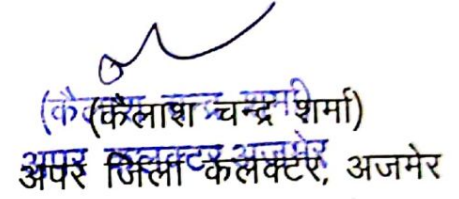 (कैलाश चन्द्र शर्मा)
अपर जिला कलेक्टर, अजमेर